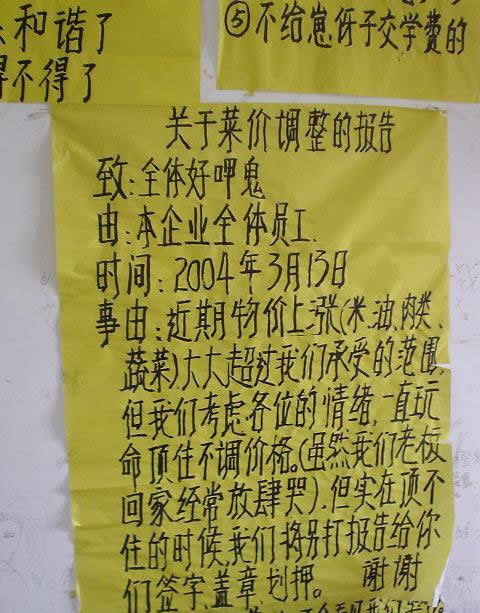 和谐了
得不得了
⑤不给崽伢子交学费的
关于菜价调整的报告
致:全体好呷鬼
由:本企业全体员工.
时间:2004年3月13日
事由:近期物价上涨(米、油、肉类、
蔬菜),大大超过我们承受的范围,
但我们考虑各位的情绪,一直玩
命顶住不调价格。(虽然我们老板
回家经常放肆哭),但实在顶不
住的时候,我们将另打报告给你
们签字、盖章、划押。 谢谢